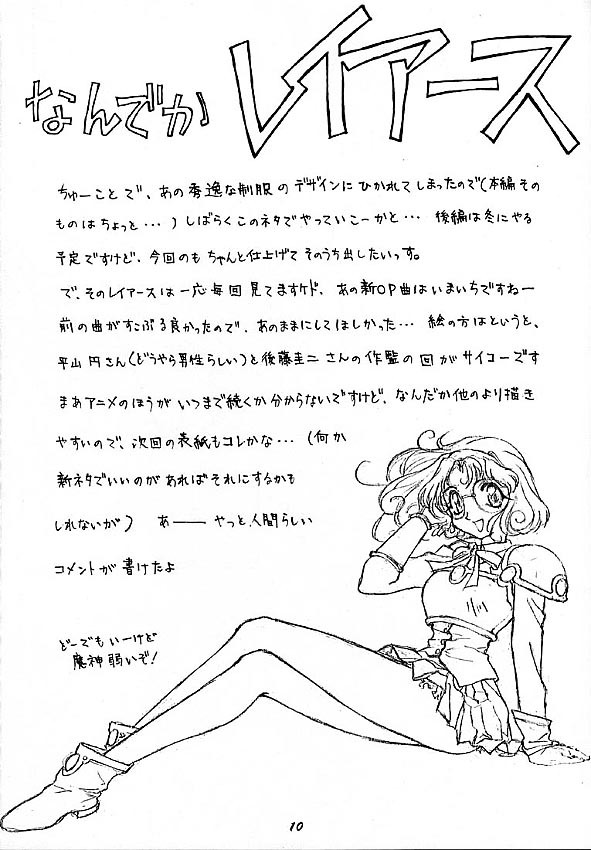 なんでか レイアース
ちゅーことで、あの秀逸な制服のデザインにひかれてしまったので(本編その
ものはちょっと…)しばらくこのネタでやっていこーかと… 後編は冬にやる
予定ですけど、今回のもちゃんと仕上げてそのうち出したいっす。
で、そのレイアースは一応毎回見てますケド、あの新OP曲はいまいちですねー
前の曲がすこぶる良かったので、あのままにしてほしかった… 絵の方はというと、
平山円さん(どうやら男性らしい)と後藤圭二さんの作監の回がサイコーです
まあアニメのほうがいつまで続くか分からないですけど、なんだか他のより描き
やすいので、次回の表紙もコレかな…(何か
新ネタでいいのがあればそれにするかも
しれないが) あ―― やっと、人間らしい
コメントが書けたよ
どーでもいーけど
魔神弱いぞ!
10